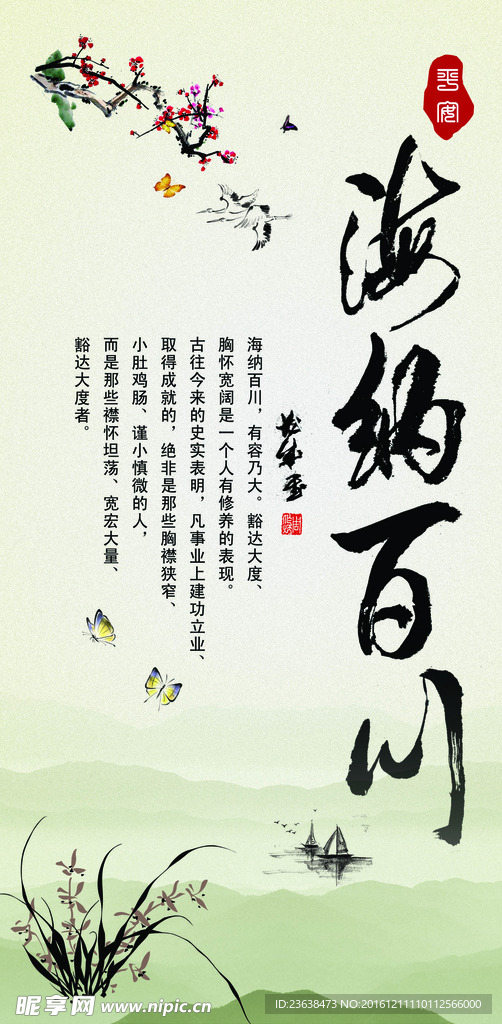 平安
海纳百川
海纳百川，有容乃大。豁达大度、
胸怀宽阔是一个人有修养的表现。
古往今来的史实表明，凡事业上建功立业、
取得成就的，绝非是那些胸襟狭窄、
小肚鸡肠、谨小慎微的人，
而是那些襟怀坦荡、宽宏大量、
豁达大度者。
昵享网 www.nipic.cn
ID:23638473 NO:20161211110112566000